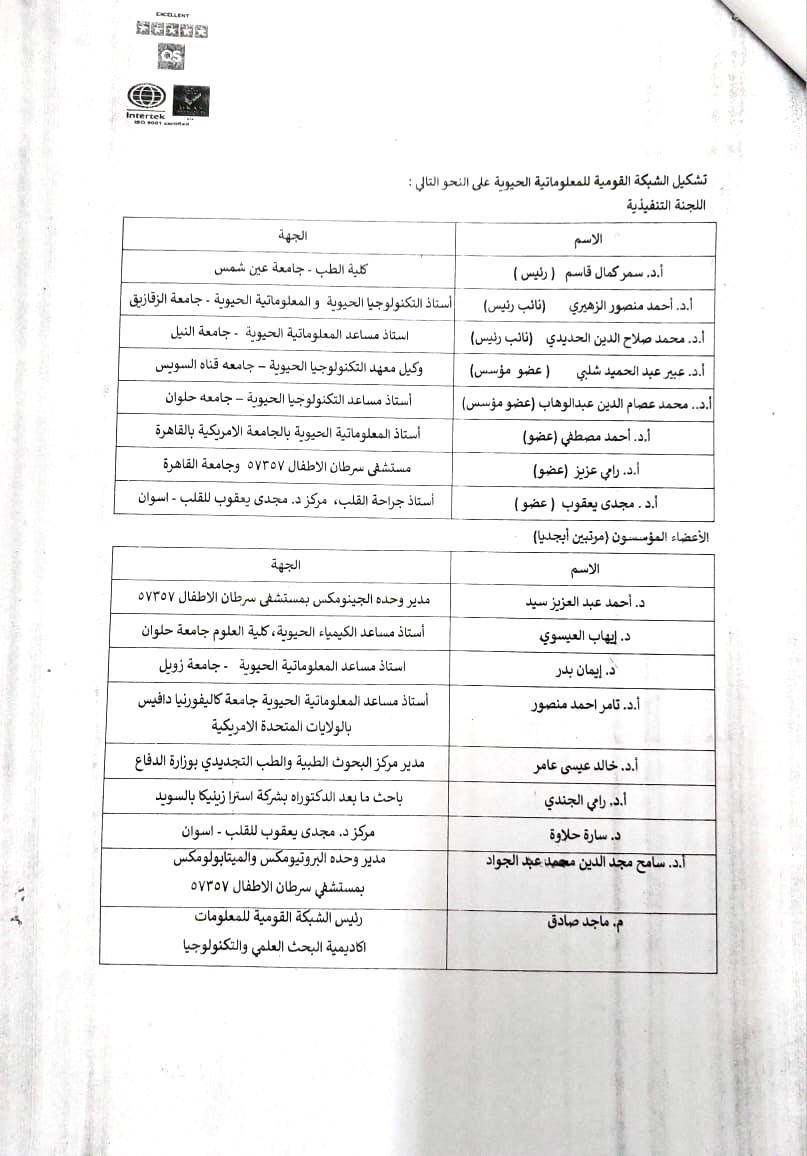 EXCELLENT
QS
Intertek
ISO 9001 certified
UKAS
تشكيل الشبكة القومية للمعلوماتية الحيوية على النحو التالي :
اللجنة التنفيذية
الاسم الجهة
أ.د. سمر كمال قاسم ( رئيس ) كلية الطب - جامعة عين شمس
أ.د. أحمد منصور الزهيري (نائب رئيس) أستاذ التكنولوجيا الحيوية و المعلوماتية الحيوية - جامعة الزقازيق
أ.د. محمد صلاح الدين الحديدي (نائب رئيس) استاذ مساعد المعلوماتية الحيوية - جامعة النيل
أ.د. عبير عبد الحميد شلبي ( عضو مؤسس) وكيل معهد التكنولوجيا الحيوية – جامعه قناه السويس
أ.د.. محمد عصام الدين عبدالوهاب (عضو مؤسس) أستاذ مساعد التكنولوجيا الحيوية – جامعه حلوان
أ.د. أحمد مصطفي (عضو) أستاذ المعلوماتية الحيوية بالجامعة الامريكية بالقاهرة
أ.د. رامي عزيز (عضو) مستشفى سرطان الاطفال ٥٧٣٥٧ وجامعة القاهرة
أ.د . مجدى يعقوب ( عضو ) أستاذ جراحة القلب، مركز د. مجدى يعقوب للقلب - اسوان
الأعضاء المؤسسون (مرتبين أبجديا)
الاسم الجهة
د. أحمد عبد العزيز سيد مدير وحده الجينومكس بمستشفى سرطان الاطفال ٥٧٣٥٧
د. إيهاب العيسوي أستاذ مساعد الكيمياء الحيوية، كلية العلوم جامعة حلوان
د. إيمان بدر استاذ مساعد المعلوماتية الحيوية - جامعة زويل
أ.د. تامر احمد منصور أستاذ مساعد المعلوماتية الحيوية جامعة كاليفورنيا دافيس
بالولايات المتحدة الامريكية
أ.د. خالد عيسى عامر مدير مركز البحوث الطبية والطب التجديدي بوزارة الدفاع
أ.د. رامي الجندي باحث ما بعد الدكتوراه بشركة استرا زينيكا بالسويد
د. سارة حلاوة مركز د. مجدى يعقوب للقلب - اسوان
أ.د. سامح مجد الدين محمد عبد الجواد مدير وحده البروتيومكس والميتابولومكس
بمستشفي سرطان الاطفال ٥٧٣٥٧
م. ماجد صادق رئيس الشبكة القومية للمعلومات
اكاديمية البحث العلمي والتكنولوجيا